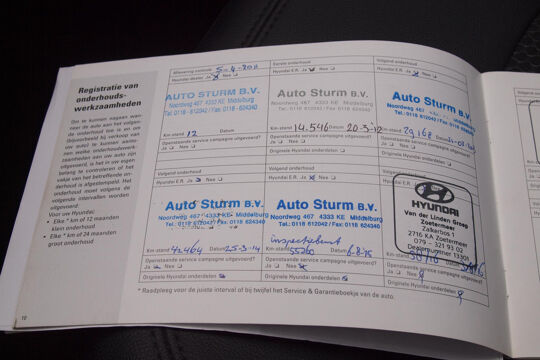 Registratie van
onderhouds-
werkzaamheden
Om te kunnen nagaan wan-
neer de auto aan het volgen-
de onderhoud toe is en om
(bijvoorbeeld bij verkoop van
uw auto) te kunnen aanto-
nen welke onderhoudswerk-
zaamheden aan uw auto zijn
uitgevoerd, is het in uw eigen
belang te controleren of het
vakje van het betreffende on-
derhoud is afgestempeld. Het
onderhoud moet volgens de
volgende intervallen worden
uitgevoerd:
Voor uw Hyundai:
• Elke * km of 12 maanden
klein onderhoud
• Elke * km of 24 maanden
groot onderhoud
10
Aflevering controle 5-4-2011
Hyundai-dealer Ja Nee
AUTO STURM B.V.
Noordweg 467 4333 KE Middelburg
Tel.: 0118-612042 / Fax 0118 624340
Km-stand 12 Datum
Eerste onderhoud
Hyundai E.R. Ja Nee
AUTO STURM B.V.
Noordweg 467 4333 KE Middelburg
Tel.: 0118-612042 / Fax 0118 624340
Km-stand 14.546 Datum 20-3-12
Openstaande service campagne uitgevoerd?
Ja Nee
Originele Hyundai onderdelen
Volgend onderhoud
Hyundai E.R. Ja Nee
AUTO STURM B.V.
Noordweg 467 4333 KE Middelburg
Tel.: 0118 612042 / Fax 0118 624340
Km-stand 29.168 Datum
Openstaande service campagne uitgevoerd?
Ja Nee
Originele Hyundai onderdelen
Volgend onderhoud
Hyundai E.R. Ja Nee
AUTO STURM B.V.
Noordweg 467 4333 KE Middelburg
Tel.: 0118-612042 / Fax 0118 624340
Km-stand 42464 Datum 25-3-14
Openstaande service campagne uitgevoerd?
Ja Nee
Originele Hyundai onderdelen
Volgend onderhoud
Hyundai E.R. Ja Nee
AUTO STURM B.V.
Noordweg 467 4333 KE Middelburg
Tel.: 0118 612042 / Fax 0118 624340
inspectiebeurt
Km-stand 55260 Datum 6-8-15
Openstaande service campagne uitgevoerd?
Ja Nee
Originele Hyundai onderdelen
Volgend onderhoud
Hyundai E.R.
HYUNDAI
Van der Linden Groep
Zoetermeer
Zalkerbos 1
2716 KA Zoetermeer
079 - 321 93 02
Dealernummer 13301
Km-stand
Openstaande service campagne uitgevoerd?
Ja Nee
Originele Hyundai onderdelen
* Raadpleeg voor de juiste interval of bij twijfel het Service & Garantieboekje van de auto.